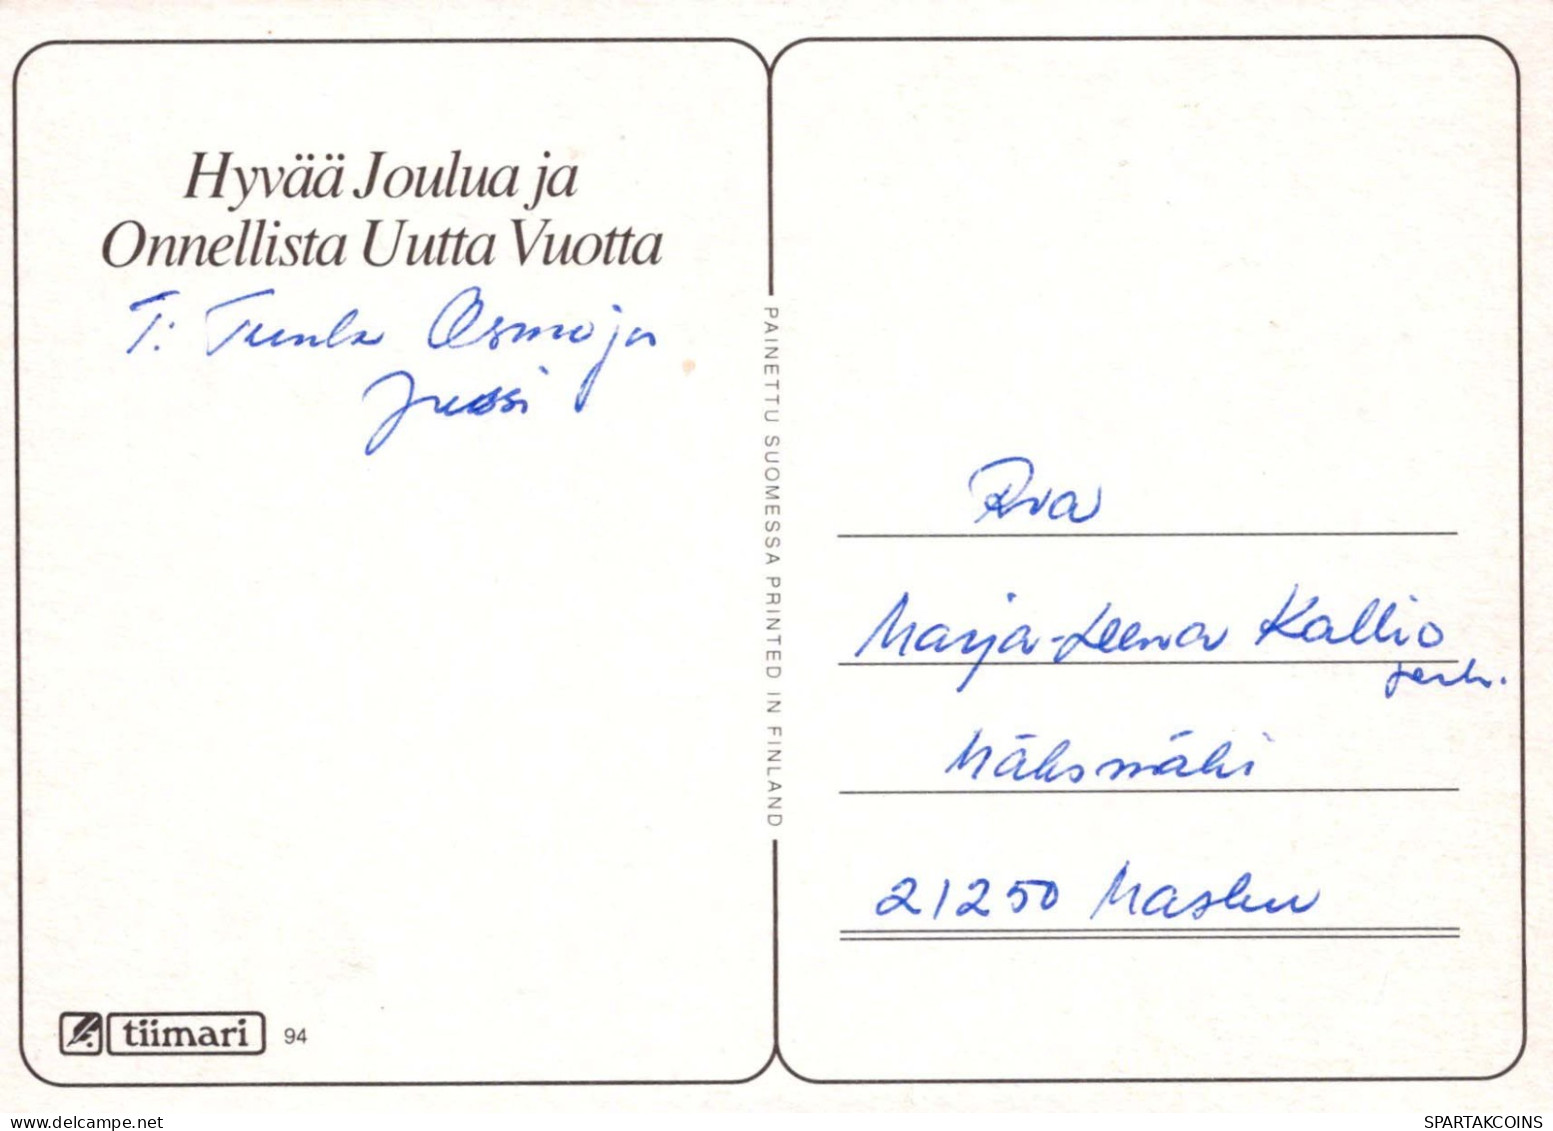 Hyvää Joulua ja
Onnellista Uutta Vuotta
T: Tuula Osmo ja
Jussi
PAINETTU SUOMESSA PRINTED IN FINLAND
Rva
Marja-Leena Kallio
perh.
21250 Masku
tiimari 94
delcampe.net
SPARTAKCOINS